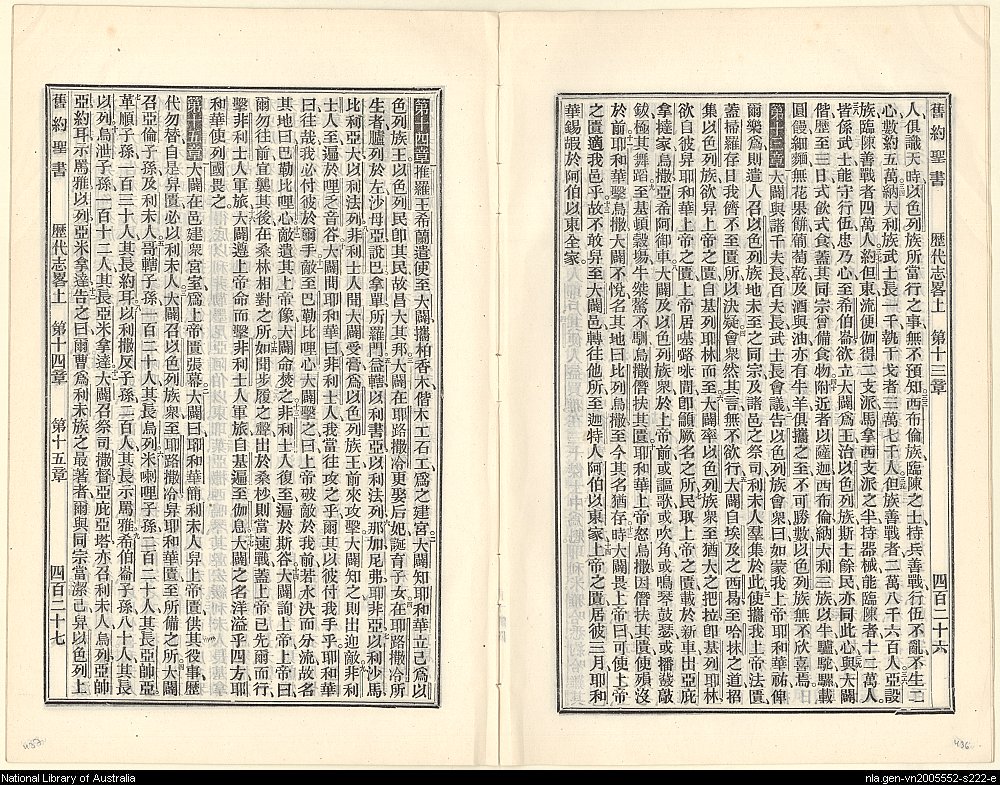 舊約聖書 歷代志畧上 第十三章 四百二十六
人俱識天時以色列族所當行之事無不預知西布倫族臨陳之士持兵善戰行伍不亂不生二
心數約五萬納大利族武士長一千執干戈者三萬七千人但族善戰者二萬八千六百人亞設
族臨陳善戰者四萬人約但東流便伽得二支派馬拿西支派之半持器械能臨陳者十二萬人
皆係武士能守行伍忠乃心至希伯崙欲立大闢爲王治以色列族斯主餘民亦同此心與大闢
偕歷至三日式飲式食蓋其同宗曾備食物附近者以薩迦西布倫納大利三族以牛驢駝騾載
圓饅細麵無花果餅葡萄乾及酒與油亦有牛羊俱攜之至不可勝數以色列族無不欣喜焉
第十三章大闢與諸千夫長百夫長武士長會議告以色列族會衆曰如蒙我上帝耶和華祐俾
爾樂爲則遣人召以色列族地未至之同宗及諸邑之祭司利未人羣集於此使攜我上帝法匱
蓋掃羅存日我儕不至匱所以決疑會衆然其言無不欲行大闢自埃及之西曷至哈抹之道招
集以色列族欲昇上帝之匱自基列耶林而至大闢率以色列族衆至猶大之把拉卽基列耶林
欲自彼昇耶和華上帝之匱上帝居𠼻𡀔咪間卽籲厥名之所民取上帝之匱載於新車出亞庇
拿撻家烏撒亞希阿御車大闢及以色列族衆於上帝前或謳歌或吹角或鳴琴鼓瑟或播鼗敲
鈸極其舞蹈至基頓穀場牛桀驁不馴烏撒僭扶其匱耶和華上帝怒烏撒因僭扶其匱使殞沒
於前耶和華擊烏撒大闢不悅名其地曰比列烏撒至今其名猶存時大闢畏上帝曰可使上帝
之匱適我邑乎故不敢昇至大闢邑轉往他所至迦特人阿伯以東家上帝之匱居彼三月耶和
華錫嘏於阿伯以東全家
第十四章推羅王希蘭遣使至大闢攜柏香木偕木工石工爲之建宮大闢知耶和華立己爲以
色列族王以色列民卽其民故昌大其邦大闢在耶路撒冷更娶后妃誕育子女在耶路撒冷所
生者臚列於左沙母亞說巴拿單所羅門益轄以利書亞以利法列那加尼弗耶非亞以利沙馬
比利亞大以利法列非利士人聞大闢受膏爲以色列族王前來攻擊大闢知之則出迎敵非利
士人至遍於哩乏之谷大闢問耶和華曰非利士人至我當往攻之乎爾其以彼付我手乎耶和華
曰往哉我必付彼於爾手敵至巴勒比哩心大闢擊之曰上帝破敵於我前若水決而分流故名
其地曰巴勒比哩心敵遺其上帝像大闢命焚之非利士人復至遍於斯谷大闢詢上帝上帝曰
爾勿往前宜襲其後在桑林相對之所如聞步履之聲出於桑杪則當速戰蓋上帝已先爾而行
擊非利士人軍旅大闢遵上帝命而擊非利士人軍旅自基遍至伽息大闢之名洋溢乎四方耶
和華使列國畏之
第十五章大闢在邑建衆宮室爲上帝匱張幕大闢曰耶和華簡利未人舁上帝匱供其役事歷
代勿替自是舁匱必以利未人大闢召以色列族衆至耶路撒冷舁耶和華匱至所備之所大闢
召亞倫子孫及利未人哥轄子孫一百二十人其長烏列米喇哩子孫二百二十人其長亞帥亞
革順子孫一百三十人其長約耳以利撒反子孫二百人其長示罵雅希伯崙子孫八十人其長
以列烏泄子孫一百十二人其長亞米拿達大闢召祭司撒督亞庇亞塔亦召利未人烏列亞帥
亞約耳示罵雅以列亞米拿達告之曰爾曹爲利未族之最著者爾與同宗當潔己舁以色列上
舊約聖書 歷代志畧上 第十四章 第十五章 四百二十七
437
436
National Library of Australia
nla.gen-vn2005552-s222-e